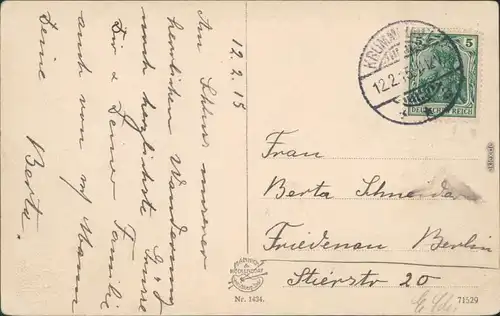 12.2.15
Am Schluss unserer
herrlichen Wanderung
noch herzlichste Grüsse
Dir & Deiner Familie
auch von m/ Mann
Deine
Berta.
KRUMMHÜBEL
12.2.15
5
DEUTSCHES REICH
Frau
Berta Schneider
Friedenau Berlin
Stierstr 20
Nr. 1434.
71529